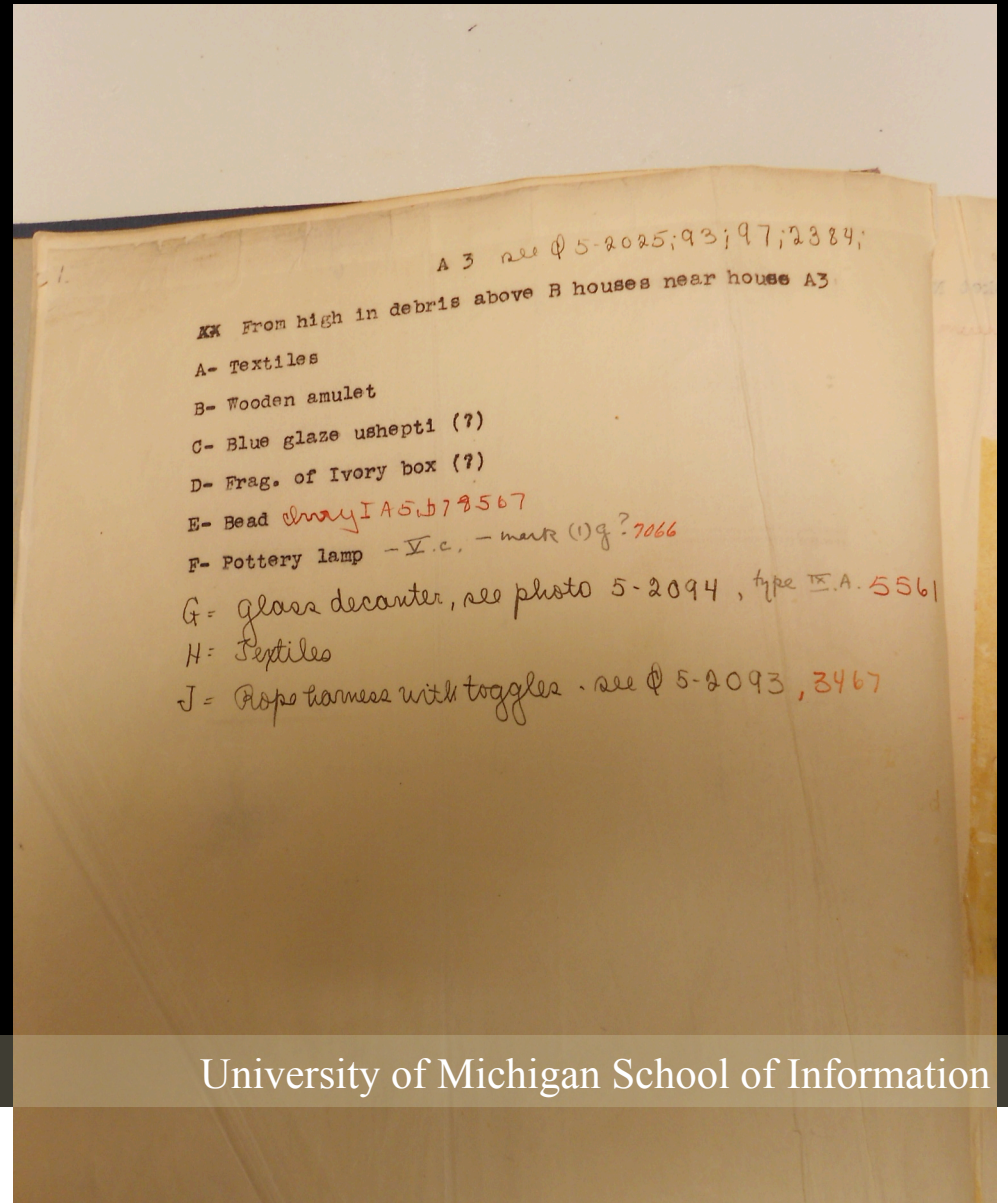 A 3 see φ 5-2025;93;97;2384;
XX From high in debris above B houses near house A3
A- Textiles
B- Wooden amulet
C- Blue glaze ushepti (?)
D- Frag. of Ivory box (?)
E- Bead Ivory I A5,b7 8567
F- Pottery lamp - V.c. - mark (1) g? 7066
G= glass decanter, see photo 5-2094, type IX.A. 5561
H= Textiles
J= Rope harness with toggles. see φ 5-2093, 3467
University of Michigan School of Information